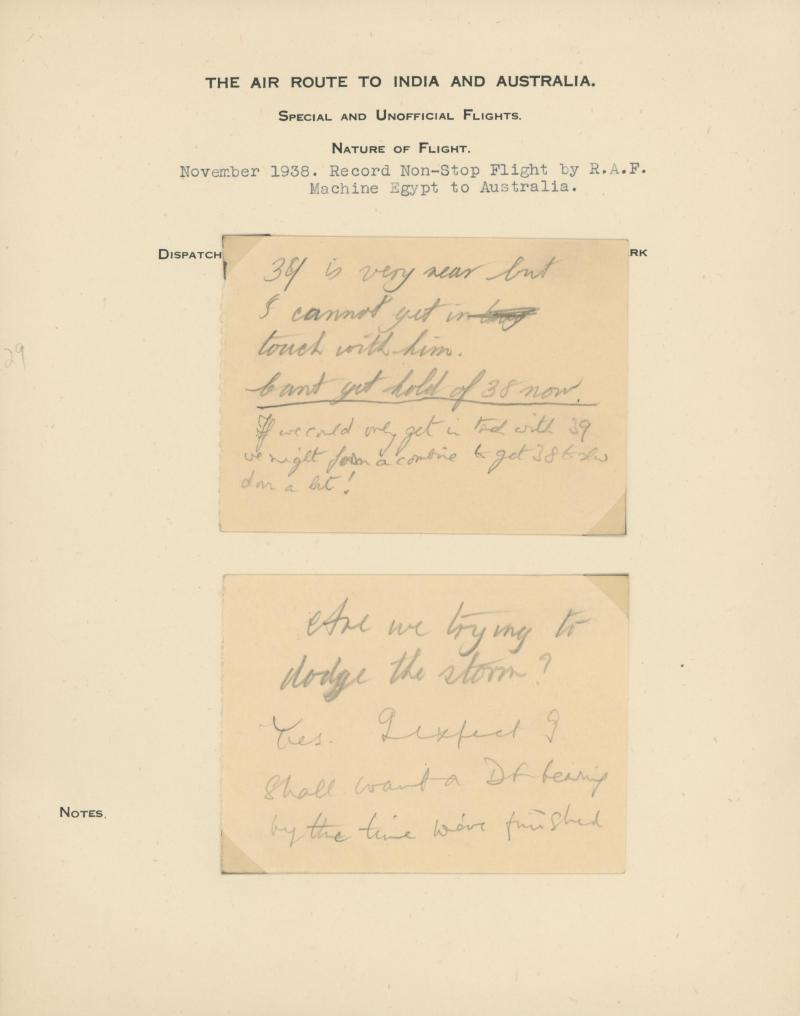 THE AIR ROUTE TO INDIA AND AUSTRALIA.
SPECIAL AND UNOFFICIAL FLIGHTS.
NATURE OF FLIGHT.
November 1938. Record Non-Stop Flight by R.A.F.
Machine Egypt to Australia.
DISPATCH
RK
38 is very near but
I cannot get in
touch with him.
Cant get hold of 38 now.
If we could only get in with 39
we might form a combine to get 38 to slow
down a bit!
29
Are we trying to
dodge the storm?
Yes. I expect I
shall want a DF bearing
by the time we've finished
NOTES.